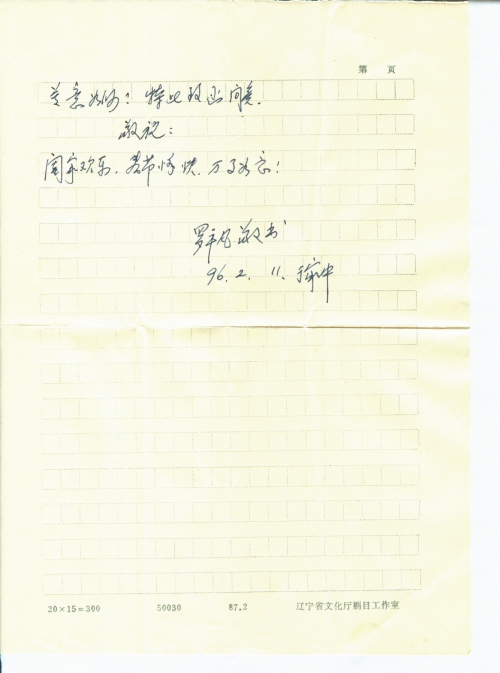 第 页
意如何？特此致函问候．
敬祝：
阖家欢乐．春节愉快．万事如意！
罗平凡敬书
96.2.11.于家中
20×15=300 50030 87.2 辽宁省文化厅剧目工作室